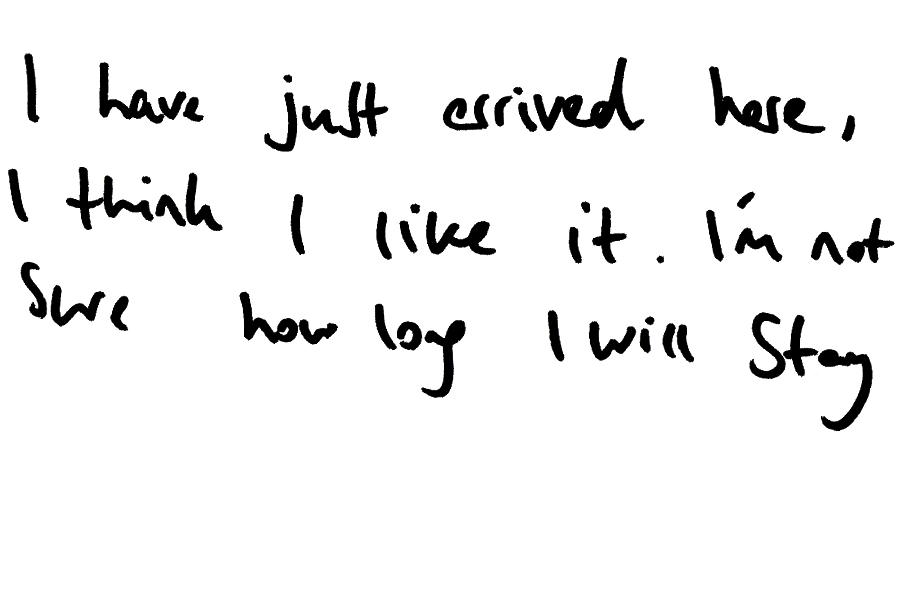 I have just arrived here,
I think I like it. I'm not
sure how long I will stay